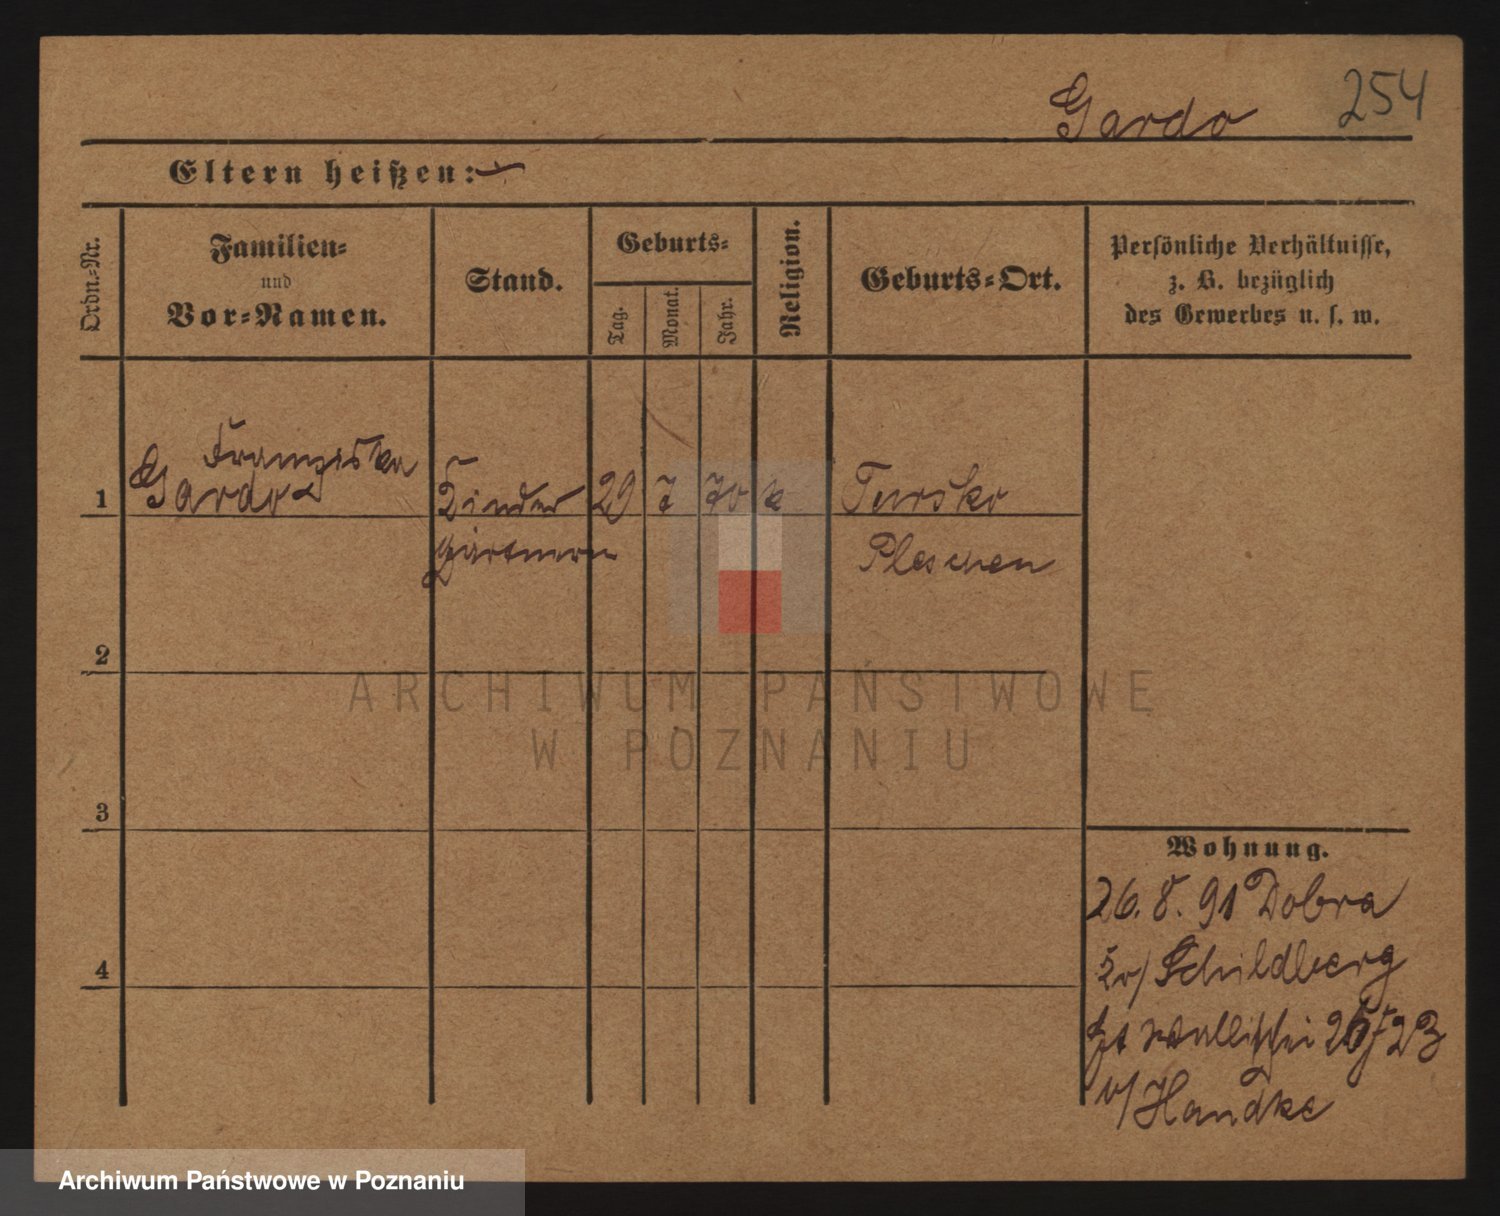 Gardo 254
Eltern heißen:
Ordn.-Nr.
Familien-
und
Vor-Namen.
Stand.
Geburts-
Tag.
Monat.
Jahr.
Religion.
Geburts-Ort.
Persönliche Verhältnisse,
z. B. bezüglich
des Gewerbes u. s. w.
Franziska
1 Gardo Kinder 29 7 70 k Tursko
gärtnerin Pleschen
2
3
4
Wohnung.
26. 8. 91 Dobra
Kr/ Schildberg
Wallischei 2
v/ Handke
ARCHIWUM PAŃSTWOWE
W POZNANIU
Archiwum Państwowe w Poznaniu